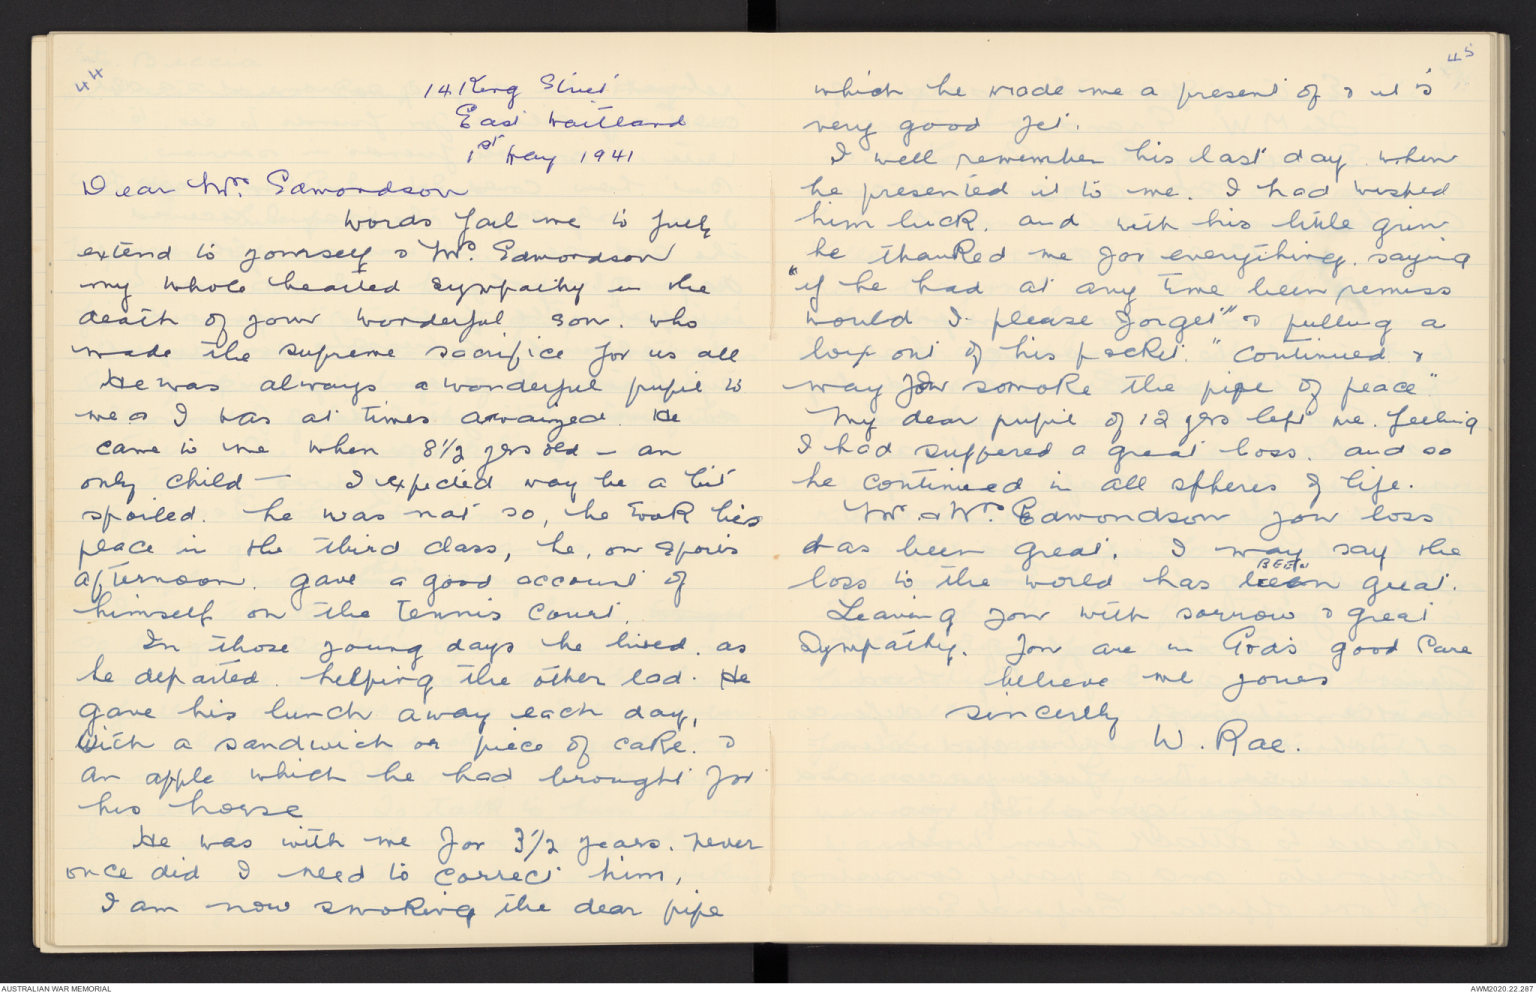 44
14 King Street
East Maitland
1st May 1941
Dear Mrs. Edmondson
Words fail me to fully
extend to yourself & Mr. Edmondson
my whole hearted sympathy in the
death of your wonderful son. who
made the supreme sacrifice for us all
He was always a wonderful pupil to
me & I was at times amaized. He
came to me when 8 1/2 yrs old - an
only child - I expected may be a bit
spoiled. he was not so, he took his
place in the third class, he, on sports
afternoon. gave a good account of
himself on the tennis court.
In those young days he lived. as
he departed. helping the other lad. He
gave his lunch away each day,
with a sandwich or piece of cake. &
an apple which he had brought for
his horse
He was with me for 3 1/2 years. never
once did I need to correct him,
I am now smoking the dear pipe
45
which he made me a present of & it is
very good yet.
I well remember his last day when
he presented it to me. I had wished
him luck. and with his little grin
he thanked me for everything. saying
"if he had at any time been remiss
would I please forget" & pulling a
box out of his pocket. "continued &
may you somoke the pipe of peace"
My dear pupil of 12 yrs left me. feeling
I had suffered a great loss. and so
he continued in all spheres of life.
Mr. & Mrs Edmondson your loss
has been great. I may say the
BEEN
loss to the world has been great.
Leaving you with sorrow & great
Sympathy. You are in God's good care
believe me yours
sincerely
W. Rae.
AUSTRALIAN WAR MEMORIAL
AWM2020.22.287